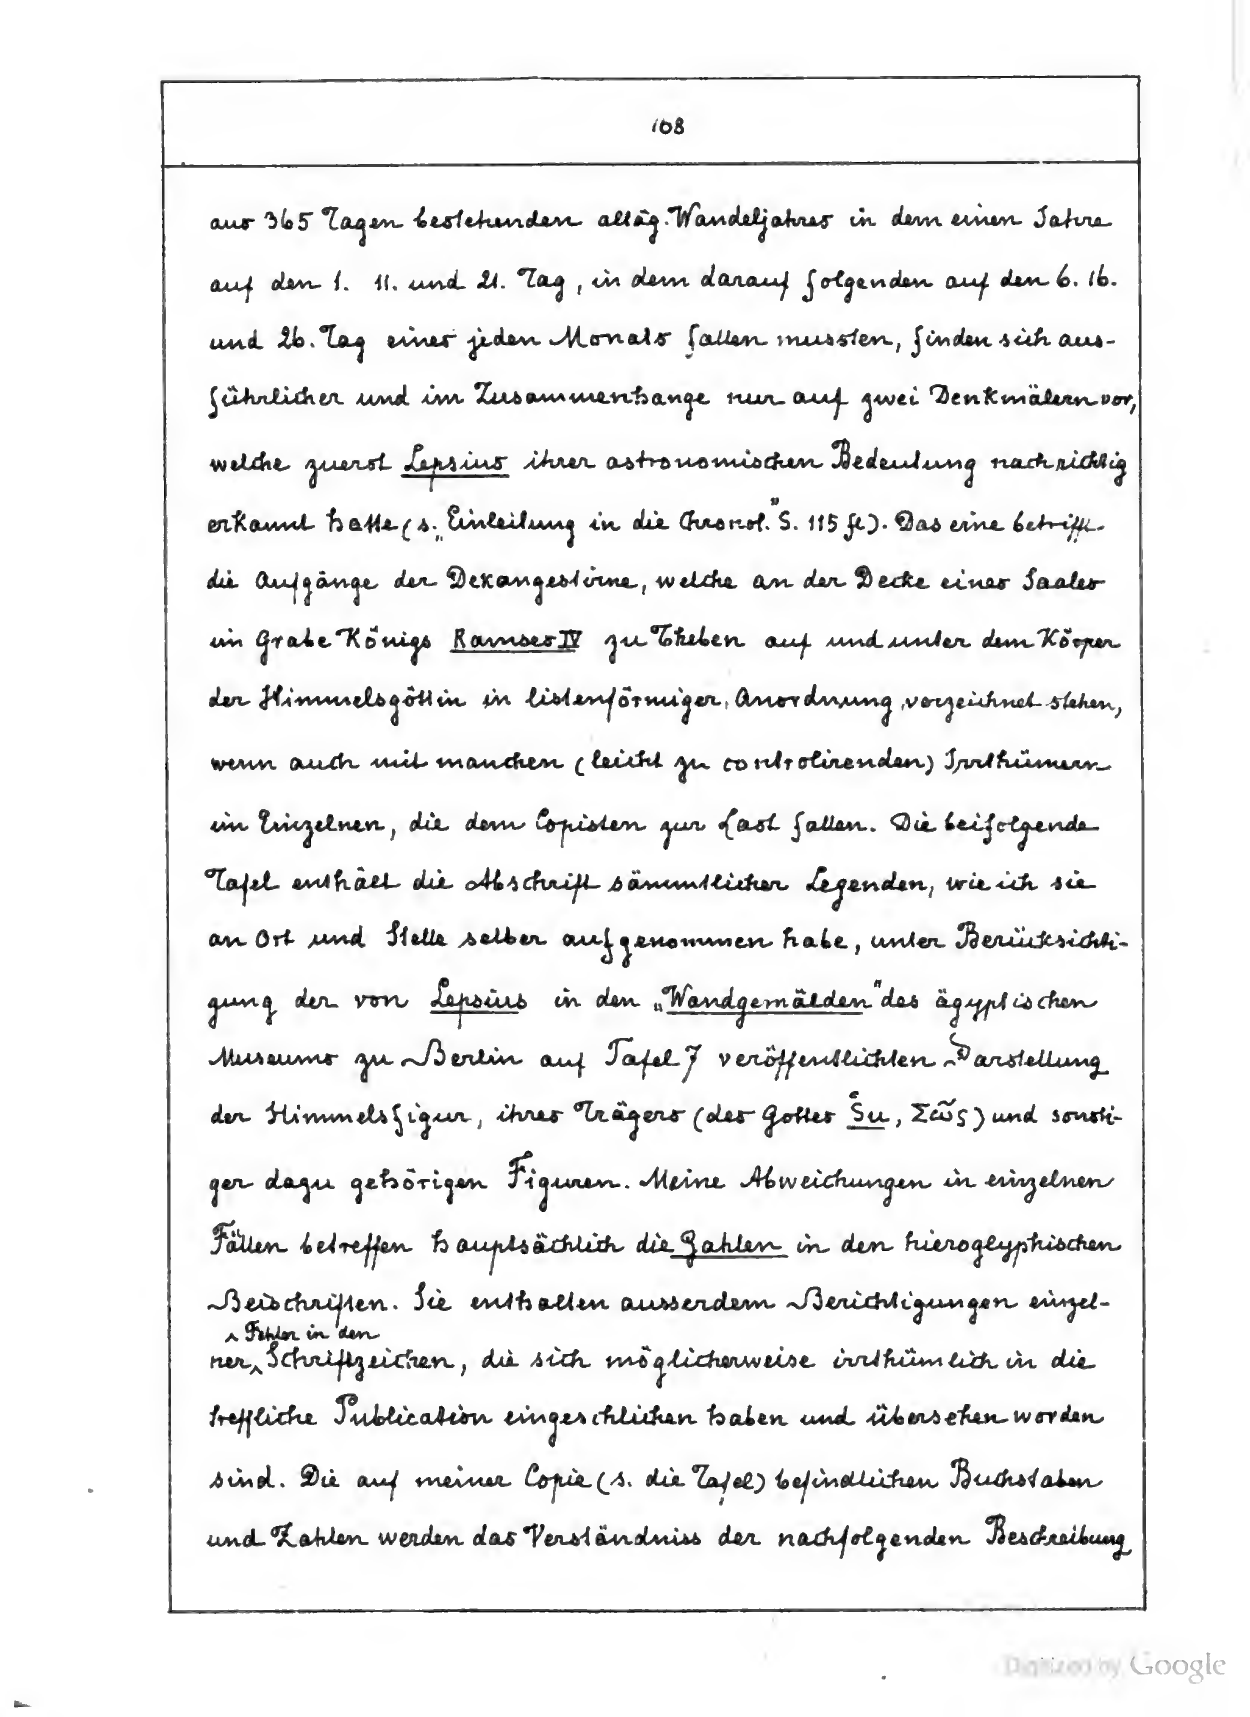 108
aus 365 Tagen bestehenden altäg. Wandeljahres in dem einen Jahre
auf den 1. 11. und 21. Tag, in dem darauf folgenden auf den 6. 16.
und 26. Tag eines jeden Monats fallen mussten, finden sich aus-
führlicher und im Zusammenhange nur auf zwei Denkmälern vor,
welche zuerst Lepsius ihrer astronomischen Bedeutung nach richtig
erkannt hatte (s. „Einleitung in die Chronol.” S. 115 fl). Das eine betrifft
die Aufgänge der Dekangestirne, welche an der Decke eines Saales
im Grabe Königs Ramses IV zu Theben auf und unter dem Körper
der Himmelsgöttin in listenförmiger Anordnung verzeichnet stehen,
wenn auch mit manchen (leicht zu controlirenden) Irrthümern
im Einzelnen, die dem Copisten zur Last fallen. Die beifolgende
Tafel enthält die Abschrift sämmtlicher Legenden, wie ich sie
an Ort und Stelle selber aufgenommen habe, unter Berücksichti-
gung der von Lepsius in den „Wandgemälden” des ägyptischen
Museums zu Berlin auf Tafel 7 veröffentlichten Darstellung
der Himmelsfigur, ihres Trägers (des Gottes Šu, Σῶς) und sonsti-
ger dazu gehörigen Figuren. Meine Abweichungen in einzelnen
Fällen betreffen hauptsächlich die Zahlen in den hieroglyphischen
Beischriften. Sie enthalten ausserdem Berichtigungen einzel-
^ Fehler in den
ner ^ Schriftzeichen, die sich möglicherweise irrthümlich in die
treffliche Publication eingeschlichen haben und übersehen worden
sind. Die auf meiner Copie (s. die Tafel) befindlichen Buchstaben
und Zahlen werden das Verständniss der nachfolgenden Beschreibung
Digitized by Google